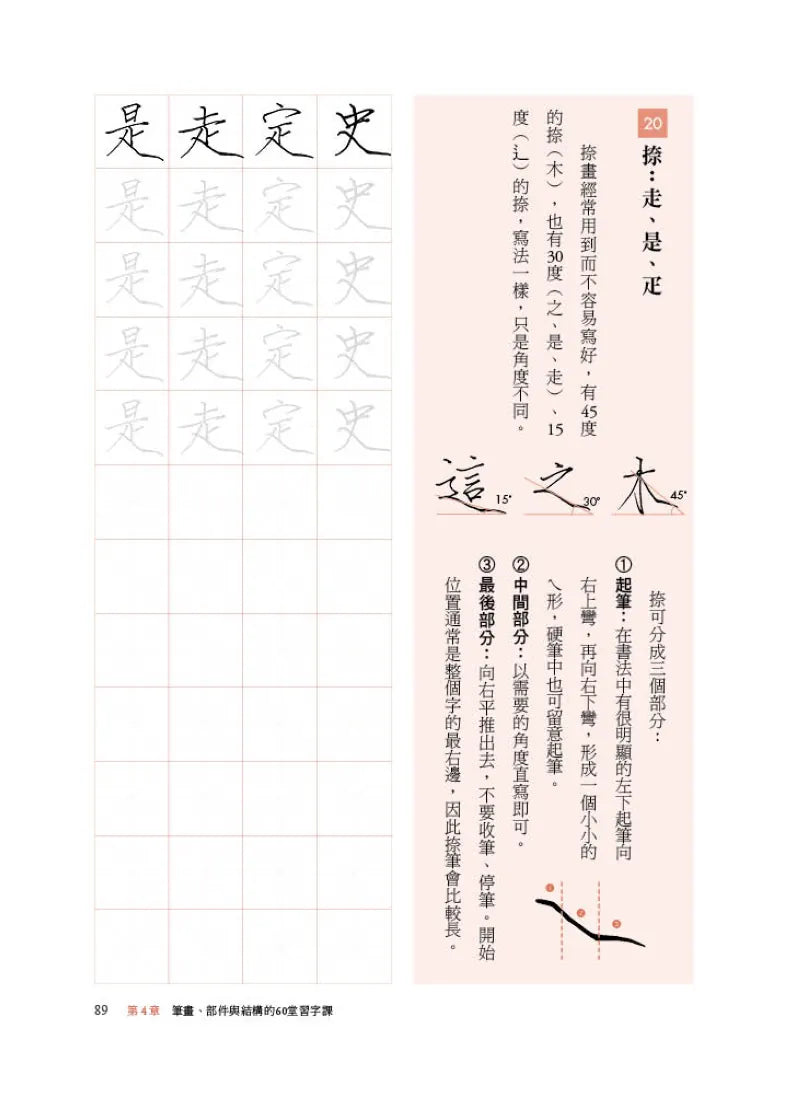 20
捺：走、是、疋
捺畫經常用到而不容易寫好，有45度
的捺（木），也有30度（之、是、走）、15
度（辶）的捺，寫法一樣，只是角度不同。
木
45°
之
30°
這
15°
捺可分成三個部分：
① 起筆：在書法中有很明顯的左下起筆向
右上彎，再向右下彎，形成一個小小的
ㄟ形，硬筆中也可留意起筆。
② 中間部分：以需要的角度直寫即可。
③ 最後部分：向右平推出去，不要收筆、停筆。開始
位置通常是整個字的最右邊，因此捺筆會比較長。
1
2
3
是 走 定 史
是 走 定 史
是 走 定 史
是 走 定 史
是 走 定 史
89 第4章 筆畫、部件與結構的60堂習字課